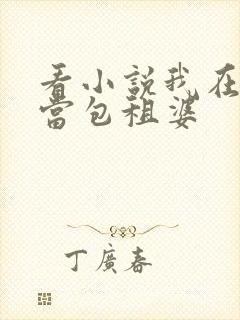 看小說我在
當包租婆
丁廣春